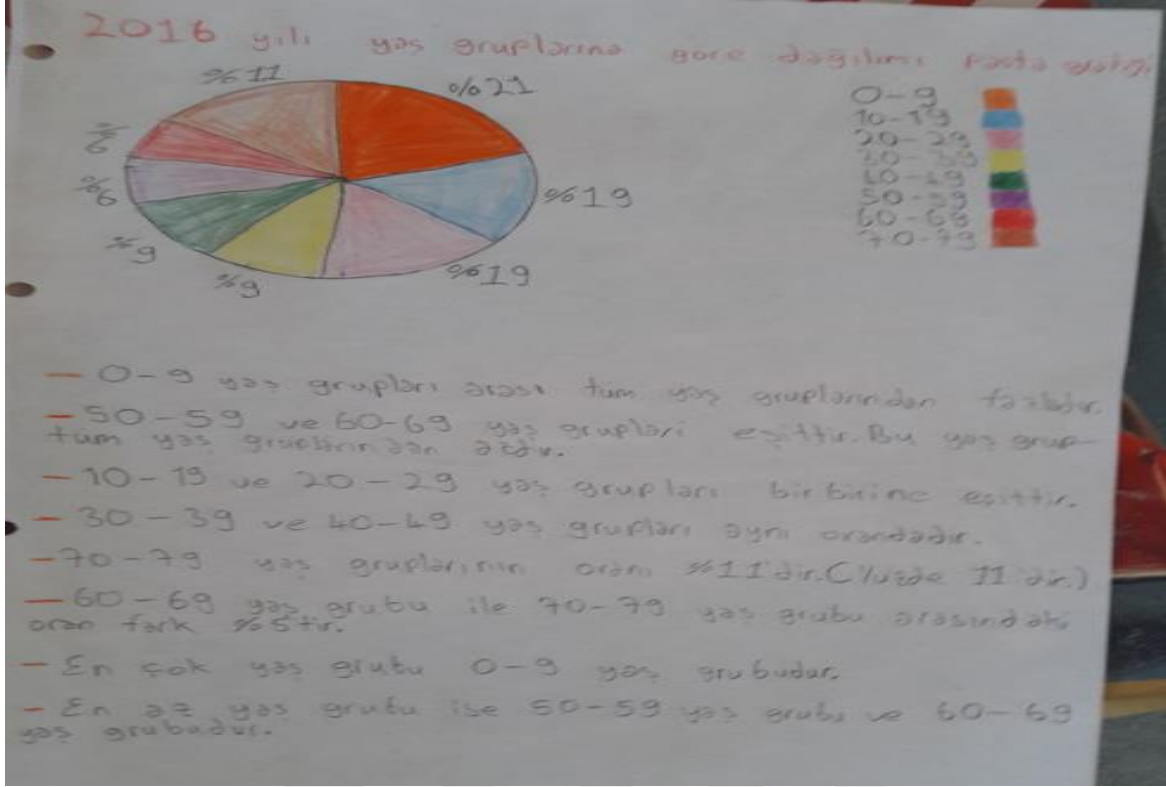 2016 yılı yaş gruplarına göre dağılımı pasta grafiği
%11
%21
%6
%6
%19
%9
%9
%19
0-9
10-19
20-29
30-39
40-49
50-59
60-68
70-79
- 0-9 yaş grupları arası tüm yaş gruplarından fazladır.
- 50-59 ve 60-69 yaş grupları eşittir. Bu yaş grup-
tüm yaş gruplarından azdır.
- 10-19 ve 20-29 yaş grupları birbirine eşittir.
- 30-39 ve 40-49 yaş grupları aynı orandadır.
- 70-79 yaş gruplarının oranı %11'dir. (Yüzde 11'dir.)
- 60-69 yaş grubu ile 70-79 yaş grubu arasındaki
oran fark %5tir.
- En çok yaş grubu 0-9 yaş grubudur.
- En az yaş grubu ise 50-59 yaş grubu ve 60-69
yaş grubudur.